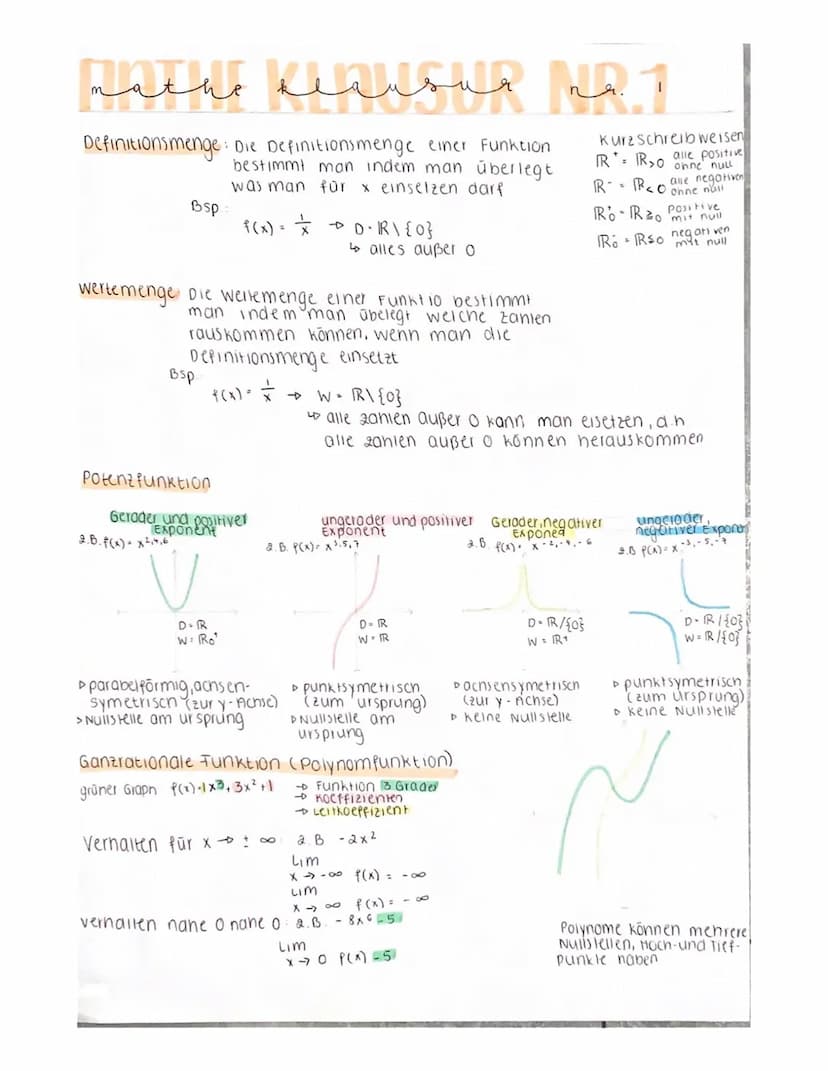 MATHE KLAUSUR NR.1
mathe klausur nr. 1
Definitionsmenge: Die Definitionsmenge einer Funktion
bestimmt man indem man überlegt
was man für x einsetzen darf
Bsp:
f(x) = 1/x → D = ℝ\{0}
↳ alles außer 0
Kurzschreibweisen
ℝ⁺ = ℝ>0 alle positive ohne null
ℝ⁻ = ℝ<0 alle negativen ohne null
ℝ₀⁺ = ℝ≥0 positive mit null
ℝ₀⁻ = ℝ≤0 negativen mit null
Wertemenge Die Wertemenge einer Funktio bestimmt
man indem man übelegt welche zahlen
rauskommen können, wenn man die
Definitionsmenge einsetzt
Bsp.
f(x) = 1/x → W = ℝ\{0}
↳ alle zahlen außer 0 kann man eisetzen, d.h
alle zahlen außer 0 können herauskommen
Potenzfunktion
Gerader und positiver
Exponent
z.B. f(x) = x²,⁴,⁶
D = ℝ
W = ℝ₀⁺
▹ parabelförmig, achsen-
symetrisch (zur y-Achse)
▹ Nullstelle am ursprung
ungerader und positiver
Exponent
z.B. f(x) = x³,⁵,⁷
D = ℝ
W = ℝ
▹ punktsymetrisch
(zum ursprung)
▹ Nullstelle am
ursprung
Gerader, negativer
Exponent
z.B. f(x) = x⁻²,⁻⁴,⁻⁶
D = ℝ/{0}
W = ℝ⁺
▹ achsensymetrisch
(zur y-Achse)
▹ keine Nullstelle
ungerader,
negativer Expone
z.B f(x) = x⁻³,⁻⁵,⁻⁷
D = ℝ/{0}
W = ℝ/{0}
▹ punktsymetrisch
(zum ursprung)
▹ keine Nullstelle
Ganzrationale Funktion (Polynomfunktion)
grüner Graph f(x) = 1x³ + 3x² + 1 → Funktion 3 Grades
→ Koeffizienten
→ Leitkoeffizient
Verhalten für x → ± ∞ z.B -2x²
Lim
x → -∞ f(x) = -∞
Lim
x → ∞ f(x) = -∞
verhalten nahe 0 nahe 0: z.B. -8x⁶ -5
Lim
x → 0 f(x) -5
Polynome können mehrere
Nullstellen, Hoch-und Tief-
punkte haben